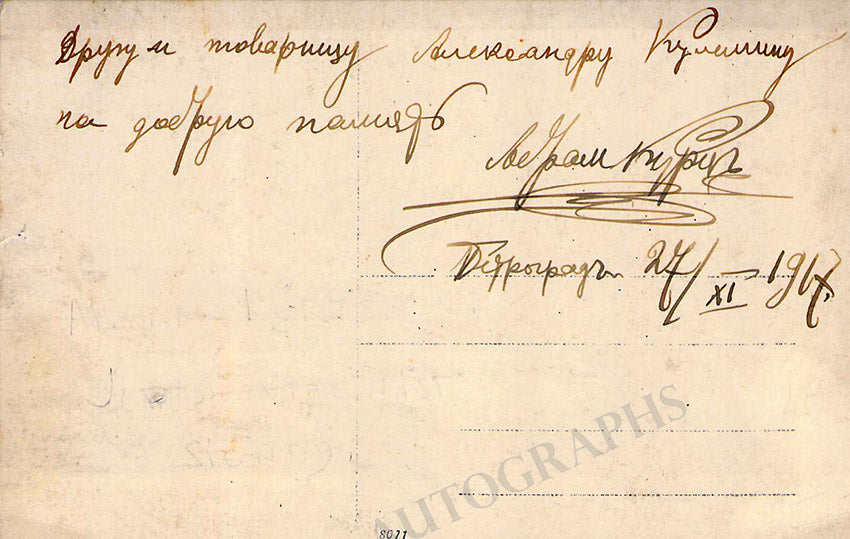 Другу и товарищу Александру Кулемину
на добрую память
Абрам Курцъ
Петроградъ 27/XI 1917.
AUTOGRAPHS
8011